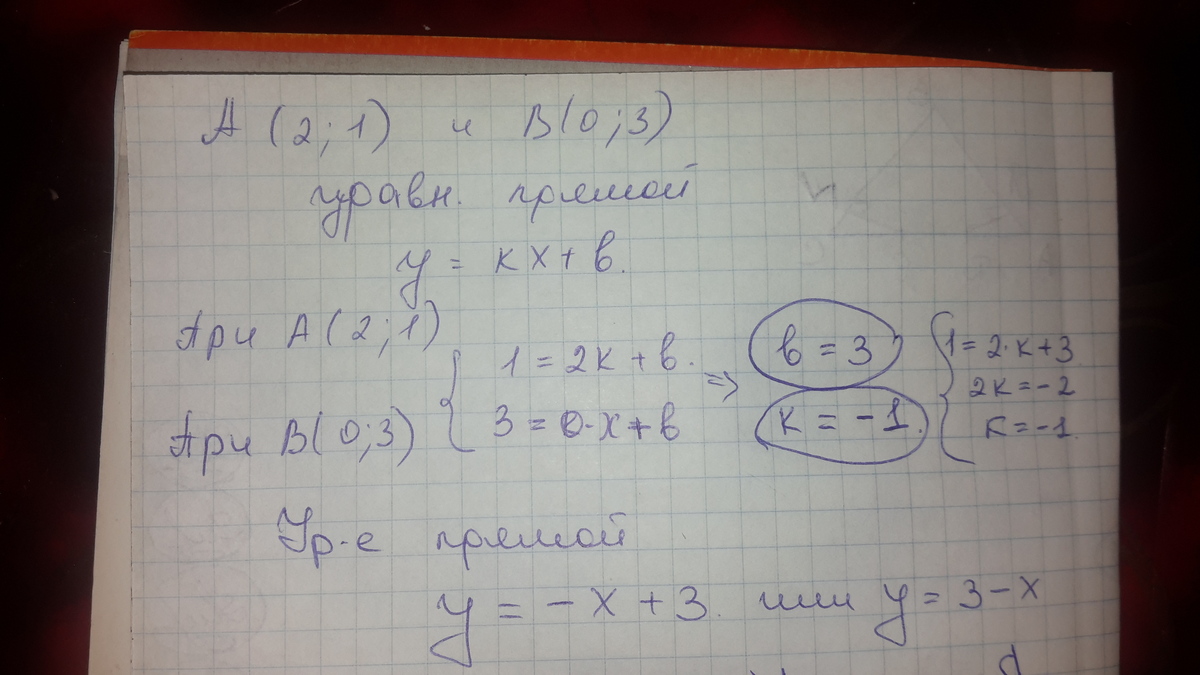 A (2; 1) и B(0; 3)
уравн. прямой
y = кx + в.
При A(2; 1)
При B(0; 3)
{ 1 = 2к + в.
3 = 0·x + в
=> в = 3
к = -1.
{ 1 = 2·к + 3
2к = -2
к = -1.
Ур-е прямой
y = -x + 3. или y = 3 - x